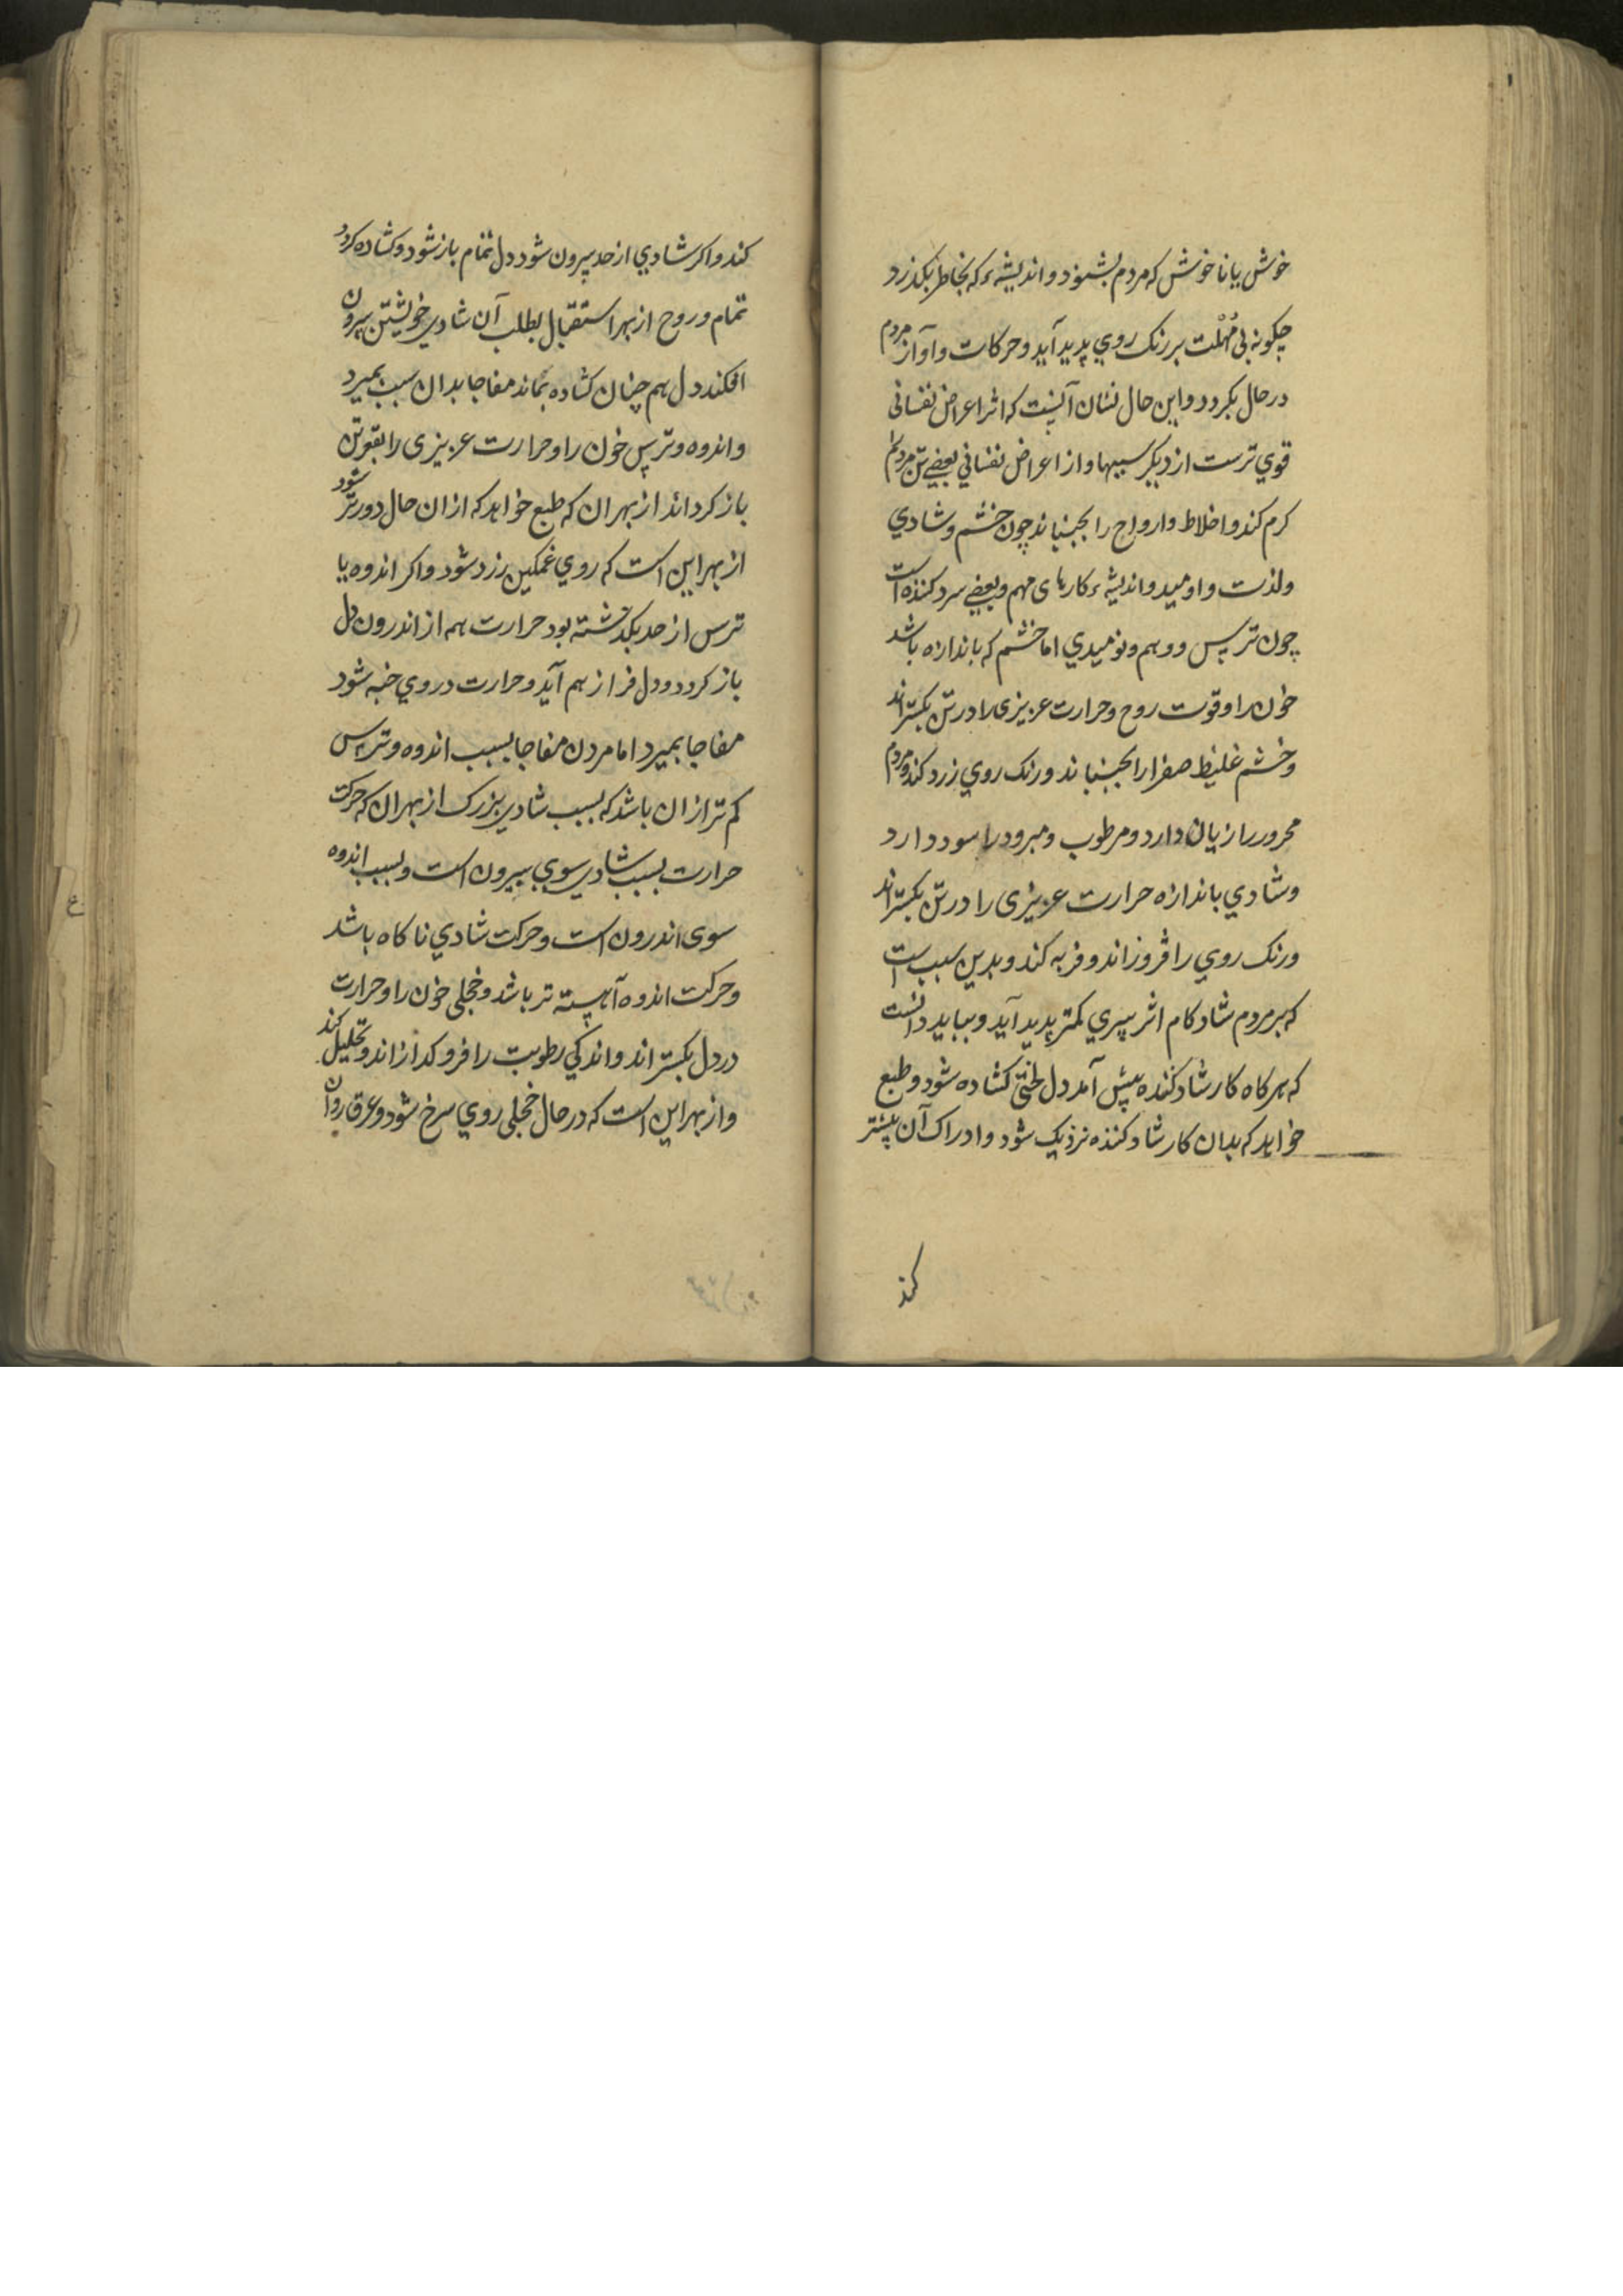 خوش یا ناخوش که مردم بشنود و اندیشهٔ که بخاطر بکذرد
چکونه بی مُهْلت بر رنک روي پدید آید و حرکات و آواز مردم
در حال بکردد و این حال نشان آنست که اثر اعراض نفسانی
قوي ترست از دیکر سببها و از اعراض نفساني بعضے تن مردم را
کرم کند و اخلاط و ارواح را بجنباند چون خشم و شادي
ولذت و اومید و اندیشهٔ کارهای مهم و بعضے سرد کننده است
چون ترس و وهم و نومیدي اما خشم که باندازه باشد
خون را و قوت روح و حرارت عزیزی را در تن بکستراند
و خشم غلیظ صفرا را بجنباند و رنک روي زرد کند و مردم
محرور را زیان دارد و مرطوب و مبرود را سود دارد
و شادي باندازه حرارت عزیزی را در تن بکستراند
و رنک روي را فروزاند و فربه کند و بدین سبب است
که بر مردم شادکام اثر پیري کمتر پدید آید و بباید دانست
که هرکاه کار شاد کننده پیش آمد دل لختی کشاده شود و طبع
خواهد که بدان کار شاد کننده نزدیک شود و ادراک آن بیشتر
کند
کند و اکر شادي از حد بیرون شود دل تمام باز شود و کشاده کردد
تمام و روح از بهر استقبال بطلب آن شادي خویشتن بیرون
افکند دل هم چنان کشاده بماند مفاجا بدان سبب بمیرد
و اندوه و ترس خون را و حرارت عزیزی را بقعر تن
باز کرداند از بهر ان که طبع خواهد که از ان حال دورتر شود
از بهر این است که روي غمکین زرد شود و اکر اندوه یا
ترس از حد بکذشته بود حرارت همه از اندرون دل
باز کردد و دل فراز هم آید و حرارت در وي خبه شود
مفاجا بمیرد اما مردن مفاجا بسبب اندوه و ترس
کم تر از ان باشد که بسبب شادي بزرک از بهر ان که حرکت
حرارت بسبب شادي سوي بیرون است و بسبب اندوه
سوی اندرون است و حرکت شادي ناکاه باشد
و حرکت اندوه آهسته تر باشد و خجلی خون را و حرارت
در دل بکستراند و اندکي رطوبت را فرو کدازاند و تحلیل کند
و از بهر این است که در حال خجلی روي سرخ شود و عرق روان